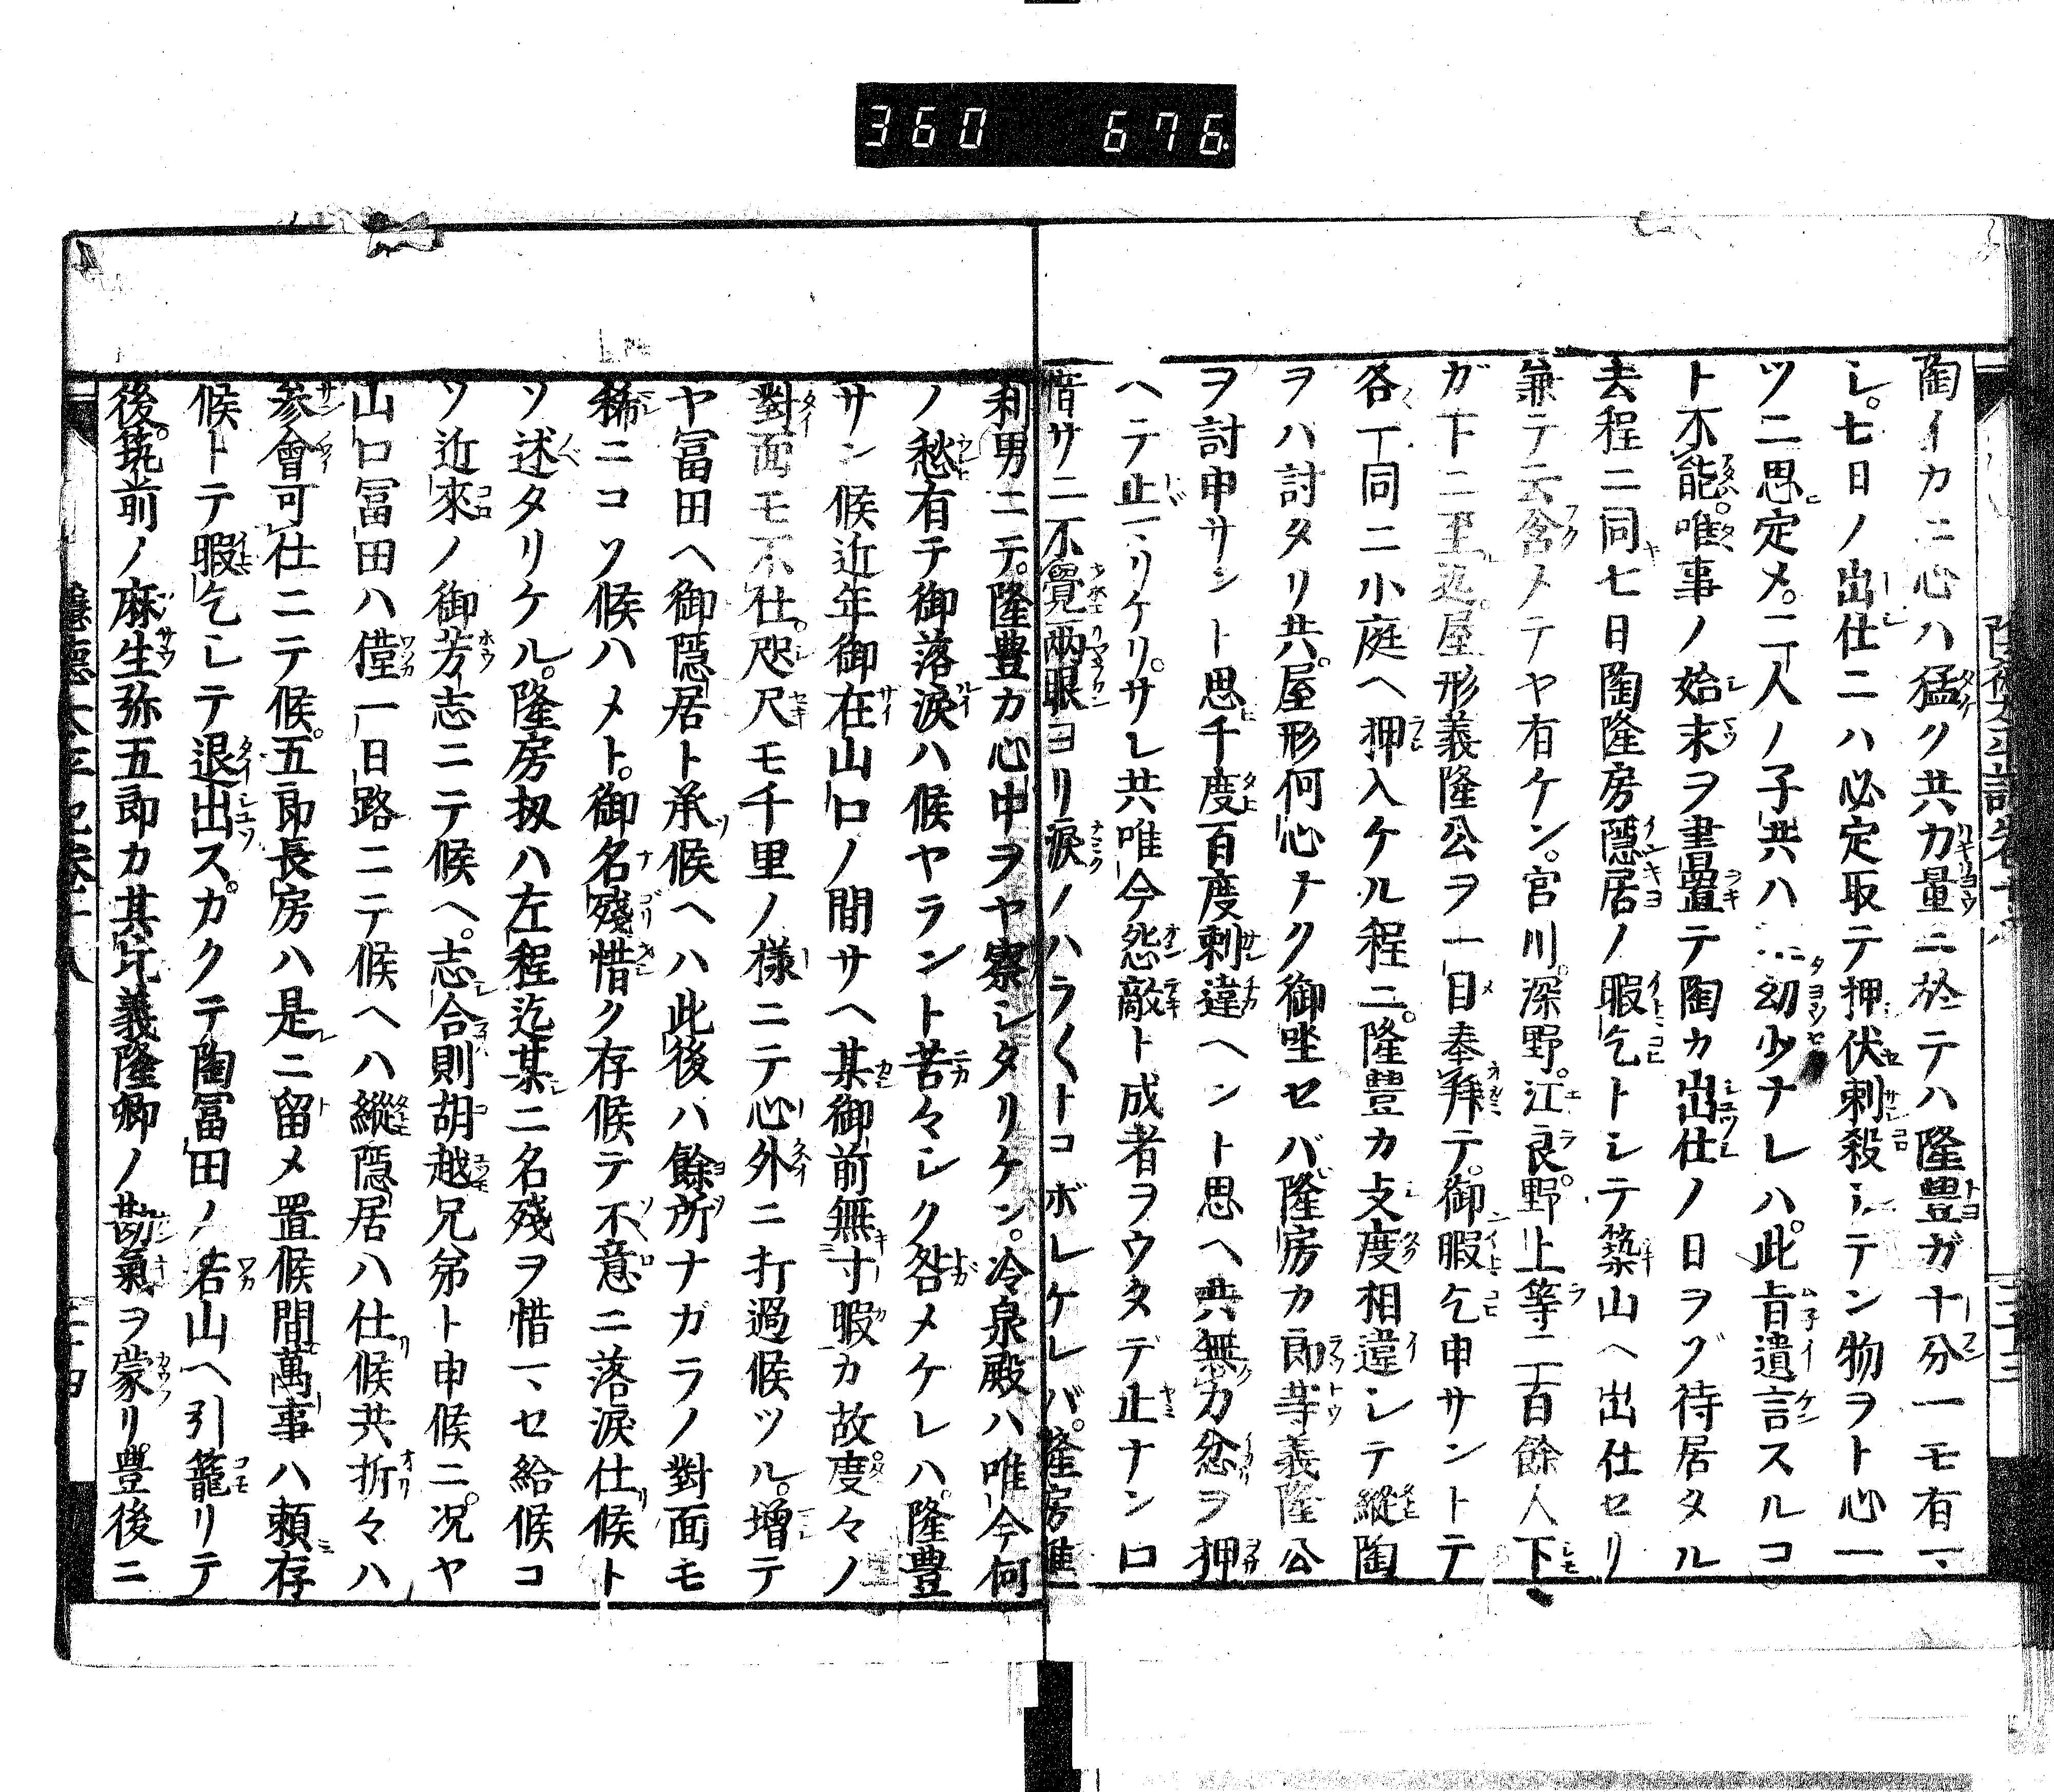 360 676
陶イカニ心ハ猛ク共力量ニ於テハ隆豊ガ十分一モ有マ
シ。七日ノ出仕ニハ必定取テ押伏刺殺シテン物ヲト心一
ツニ思定メ。二人ノ子共ハ幼少ナレハ。此旨遺言スルコ
ト不能。唯事ノ始末ヲ書置テ陶カ出仕ノ日ヲゾ待居タル
去程ニ同七日陶隆房隠居ノ暇乞トシテ築山ヘ出仕セリ
兼テ云含メテヤ有ケン。宮川。深野。江良。野上等二百餘人下
ガ下ニ至迄。屋形義隆公ヲ一目奉拜テ。御暇乞申サントテ
各一同ニ小庭ヘ押入ケル程ニ。隆豊カ支度相違シテ縦陶
ヲハ討タリ共。屋形何心ナク御坐セバ隆房カ郎等義隆公
ヲ討申サント思千度百度刺違ヘント思ヘ共無力忿ヲ押
ヘテ止マリケリ。サレ共唯今怨敵ト成者ヲウタデ止ナンロ
惜サニ不覺両眼ヨリ涙ノハラ〱トコボレケレバ。隆房進
利男ニテ。隆豊カ心中ヲヤ察シタリケン。冷泉殿ハ唯今何
ノ愁有テ御落涙ハ候ヤラント苦々シク咎メケレハ。隆豊
サン候近年御在山口ノ間サヘ某御前無寸暇カ故度々ノ
對面モ不仕。咫尺モ千里ノ様ニテ心外ニ打過候ツル。増テ
ヤ冨田ヘ御隠居ト承候ヘハ此後ハ餘所ナガラノ對面モ
稀ニコソ候ハメト。御名殘惜ク存候テ不意ニ落涙仕候ト
ソ述タリケル。隆房扨ハ左程迄某ニ名殘ヲ惜マセ給候コ
ソ近來ノ御芳志ニテ候ヘ。志合則胡越兄弟ト申候ニ。况ヤ
山口冨田ハ僅一日路ニテ候ヘハ縦隠居ハ仕候共折々ハ
參會可仕ニテ候。五郎長房ハ是ニ留メ置候間萬事ハ頼存
候トテ暇乞シテ退出ス。カクテ陶冨田ノ若山ヘ引籠リテ
後。筑前ノ麻生弥五郎カ其比義隆卿ノ勘氣ヲ蒙リ。豊後ニ